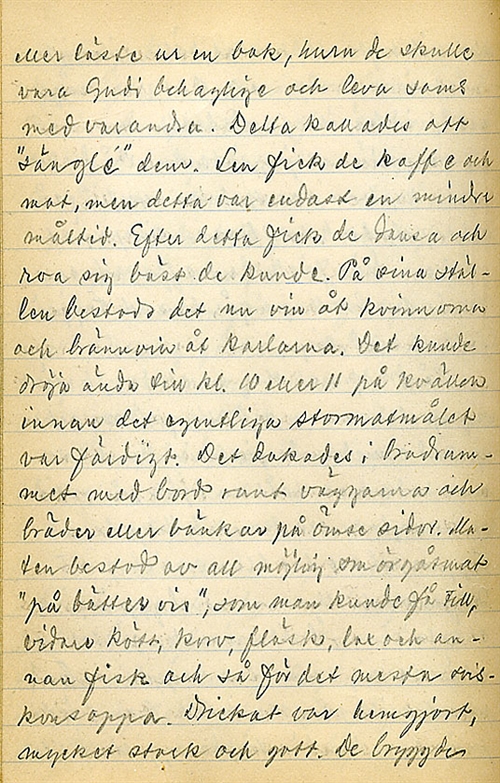 eller läste ur en bok, huru de skulle
vara Gudi behaglige och leva sams
med varandra. Detta kallades att
"sängle" dem. Sen fick de kaffe och
mat, men detta var endast en mindre
måltid. Efter detta fick de dansa och
roa sig bäst de kunde. På sina stäl-
len bestods det nu vin åt kvinnorna
och brännvin åt karlarna. Det kunde
dröja ända till kl. 10 eller 11 på kvällen
innan det egentliga stormatmålet
var färdigt. Det dukades i brudrum-
met med bord runt väggarna och
bräder eller bänkar på ömse sidor. Ma-
ten bestod av all möjlig smörgåsmat
"på bätter vis", som man kunde få till,
vidare kött, korv, fläsk, lax och an-
nan fisk och så för det mesta svis-
konsoppa. Drickat var hemgjort,
mycket stark och gott. De bryggde